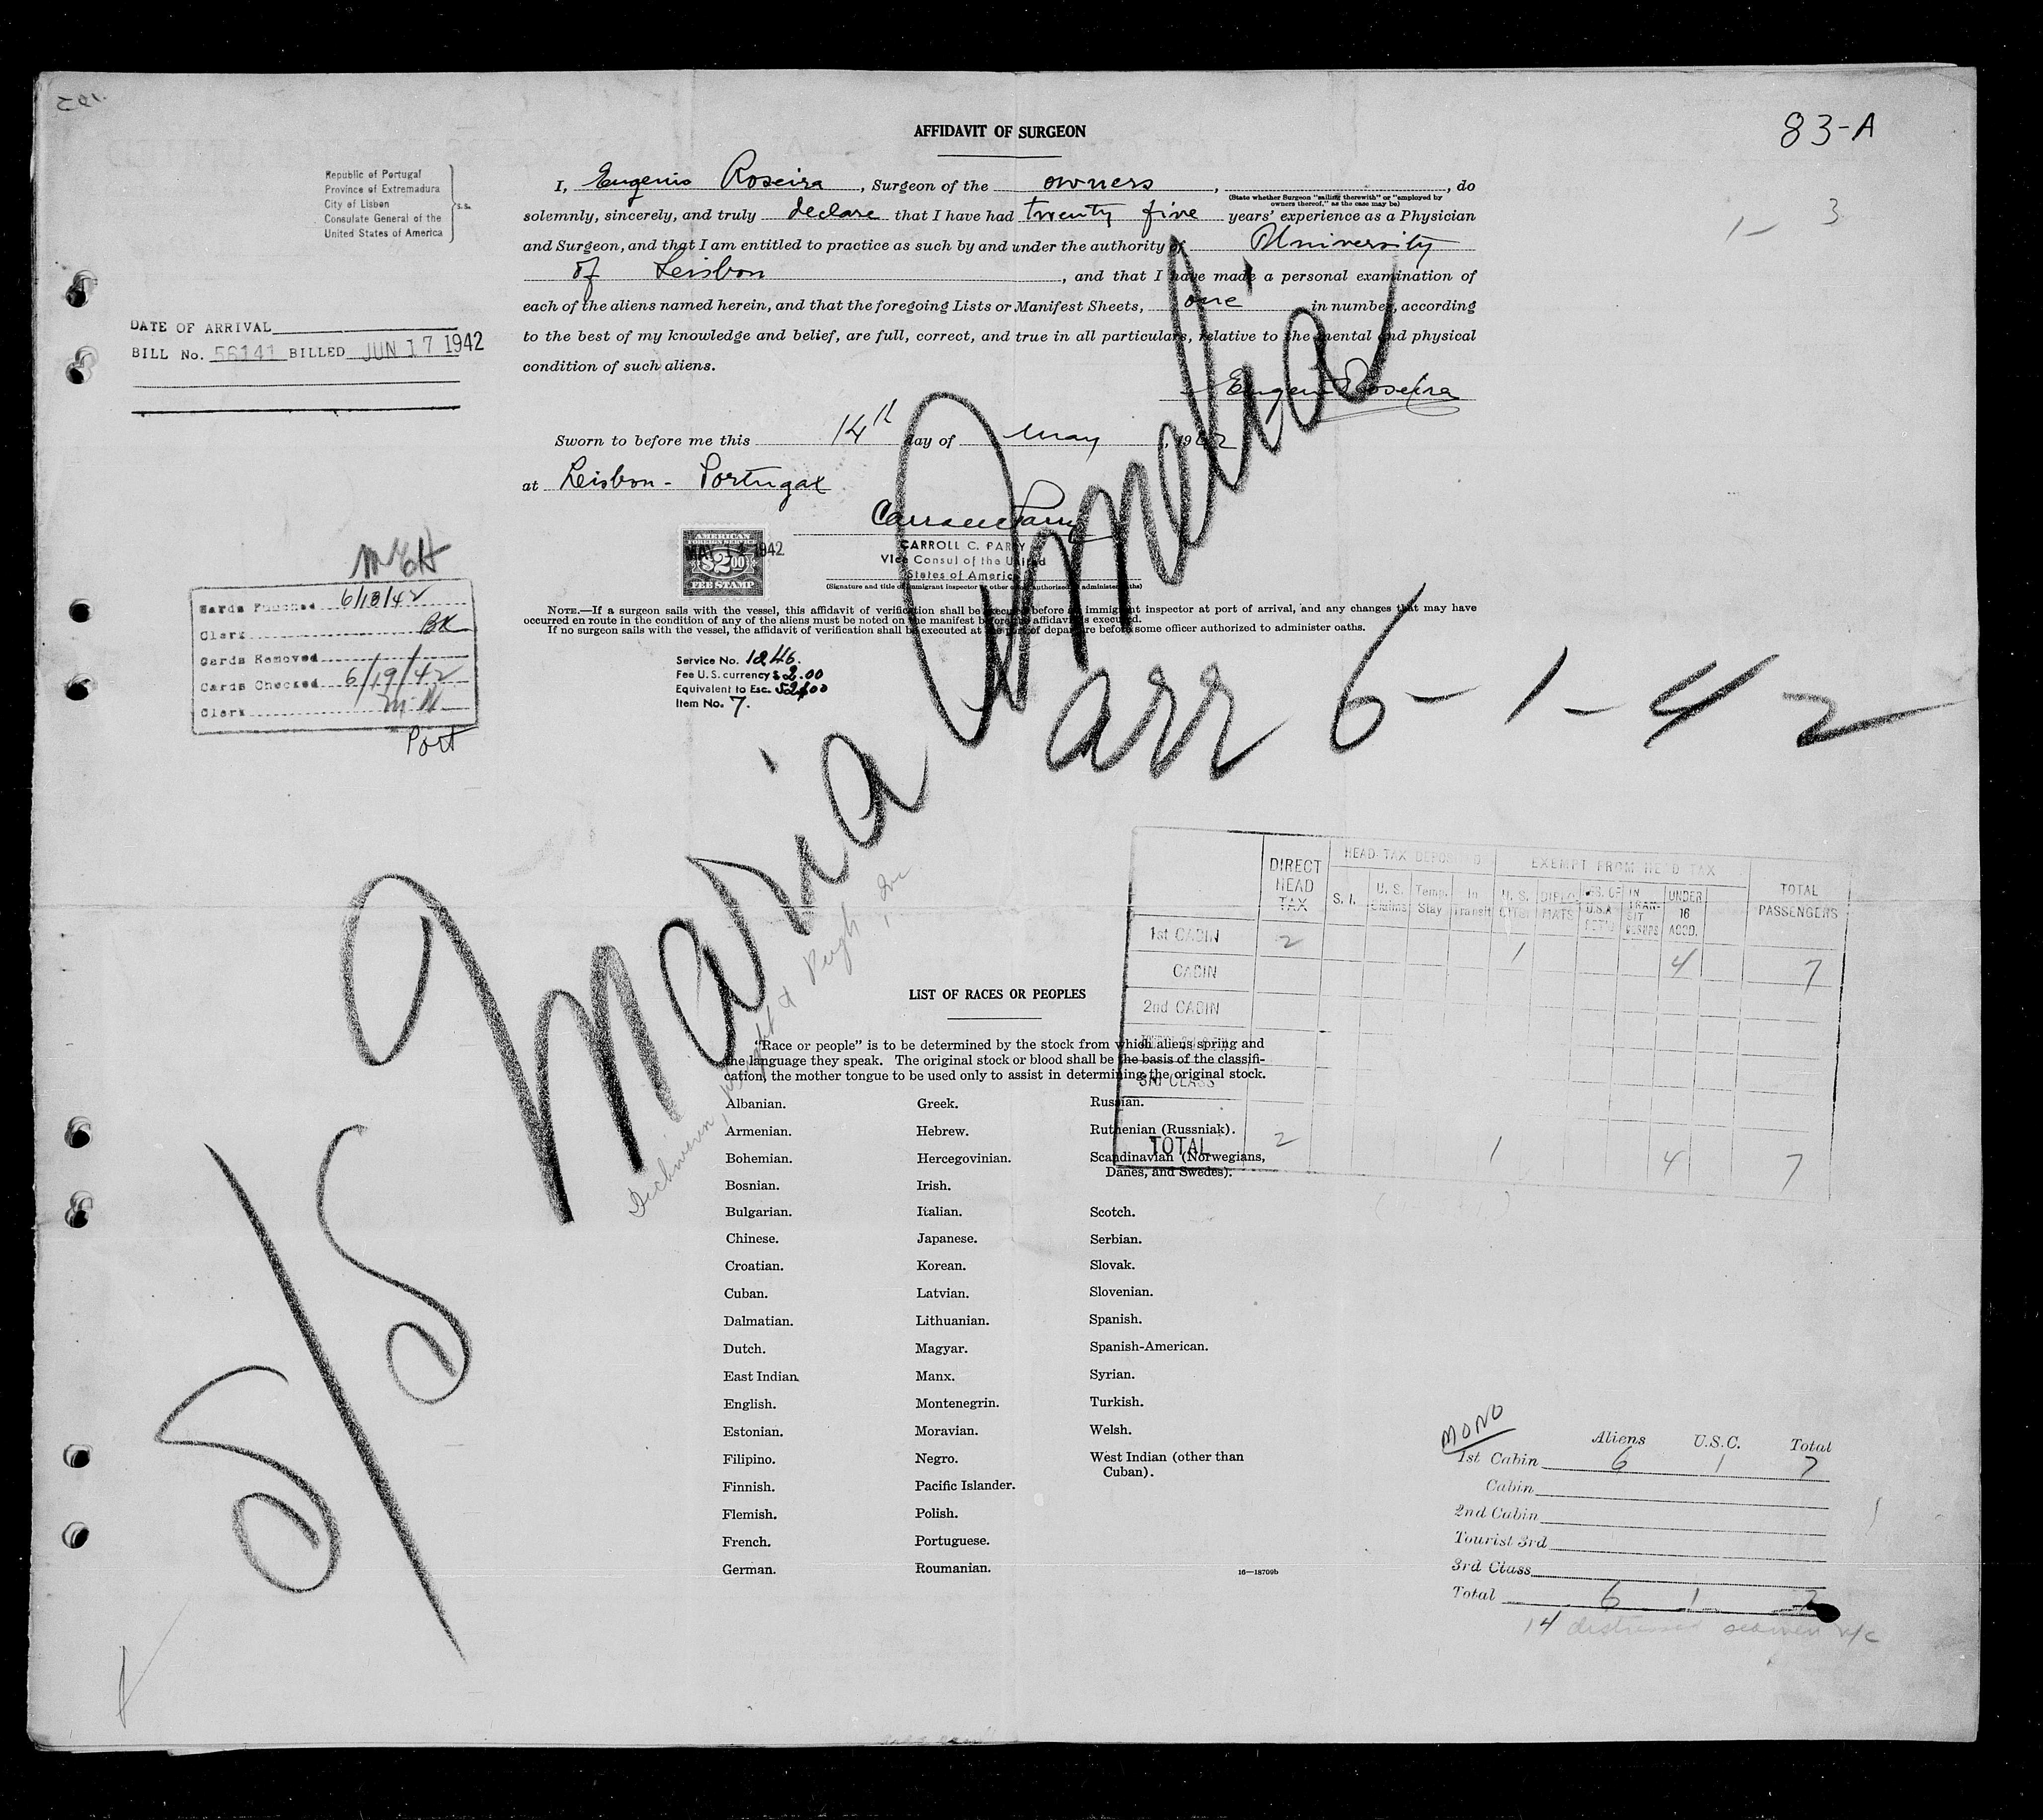 AFFIDAVIT OF SURGEON
83-A
Republic of Portugal
Province of Extremadura
City of Lisbon
Consulate General of the
United States of America
s.s.
I, Eugenio Roseira, Surgeon of the owners, , do
(State whether Surgeon "sailing therewith" or "employed by
owners thereof," as the case may be)
solemnly, sincerely, and truly declare that I have had twenty five years' experience as a Physician
and Surgeon, and that I am entitled to practice as such by and under the authority of University
of Leisbon, and that I have made a personal examination of
each of the aliens named herein, and that the foregoing Lists or Manifest Sheets, one in number, according
to the best of my knowledge and belief, are full, correct, and true in all particulars, relative to the mental and physical
condition of such aliens.
1- 3
DATE OF ARRIVAL
BILL No. 56141 BILLED JUN 17 1942
Eugenio Roseira
Sworn to before me this 14th day of May, 1942
at Leisbon - Portugal
AMERICAN
FOREIGN SERVICE
$2.00
FEE STAMP
CARROLL C. PARRY
Vice Consul of the United
States of America
(Signature and title of immigrant inspector or other officer authorized to administer oaths)
NOTE.—If a surgeon sails with the vessel, this affidavit of verification shall be executed before an immigrant inspector at port of arrival, and any changes that may have
occurred en route in the condition of any of the aliens must be noted on the manifest before the affidavit is executed.
If no surgeon sails with the vessel, the affidavit of verification shall be executed at the port of departure before some officer authorized to administer oaths.
Cards Punched 6/18/42
Clerk BK
Cards Removed
Cards Checked 6/19/42
Clerk M.H.
Port
Service No. 1246.
Fee U.S. currency $2.00
Equivalent to Esc. 52$00
Item No. 7.
S/S Maria Amelia
arr 6-1-42
DIRECT HEAD TAX
HEAD-TAX DEPOSITED
EXEMPT FROM HEAD TAX
TOTAL PASSENGERS
S. I.
U. S. Claims
Temp. Stay
In Transit
U. S. Citzn
DIPLO-MATS
UNDER 16 ACCD.
1st CABIN 2 1 4 7
CABIN
2nd CABIN
3rd CLASS
TOTAL 2 1 4 7
LIST OF RACES OR PEOPLES
"Race or people" is to be determined by the stock from which aliens spring and
the language they speak. The original stock or blood shall be the basis of the classifi-
cation, the mother tongue to be used only to assist in determining the original stock.
Albanian.
Armenian.
Bohemian.
Bosnian.
Bulgarian.
Chinese.
Croatian.
Cuban.
Dalmatian.
Dutch.
East Indian.
English.
Estonian.
Filipino.
Finnish.
Flemish.
French.
German.
Greek.
Hebrew.
Hercegovinian.
Irish.
Italian.
Japanese.
Korean.
Latvian.
Lithuanian.
Magyar.
Manx.
Montenegrin.
Moravian.
Negro.
Pacific Islander.
Polish.
Portuguese.
Roumanian.
Russian.
Ruthenian (Russniak).
Scandinavian (Norwegians,
Danes, and Swedes).
Scotch.
Serbian.
Slovak.
Slovenian.
Spanish.
Spanish-American.
Syrian.
Turkish.
Welsh.
West Indian (other than
Cuban).
16—18709b
MONO
Aliens U.S.C. Total
1st Cabin 6 1 7
Cabin
2nd Cabin
Tourist 3rd
3rd Class
Total 6 1 7
14 distressed seamen